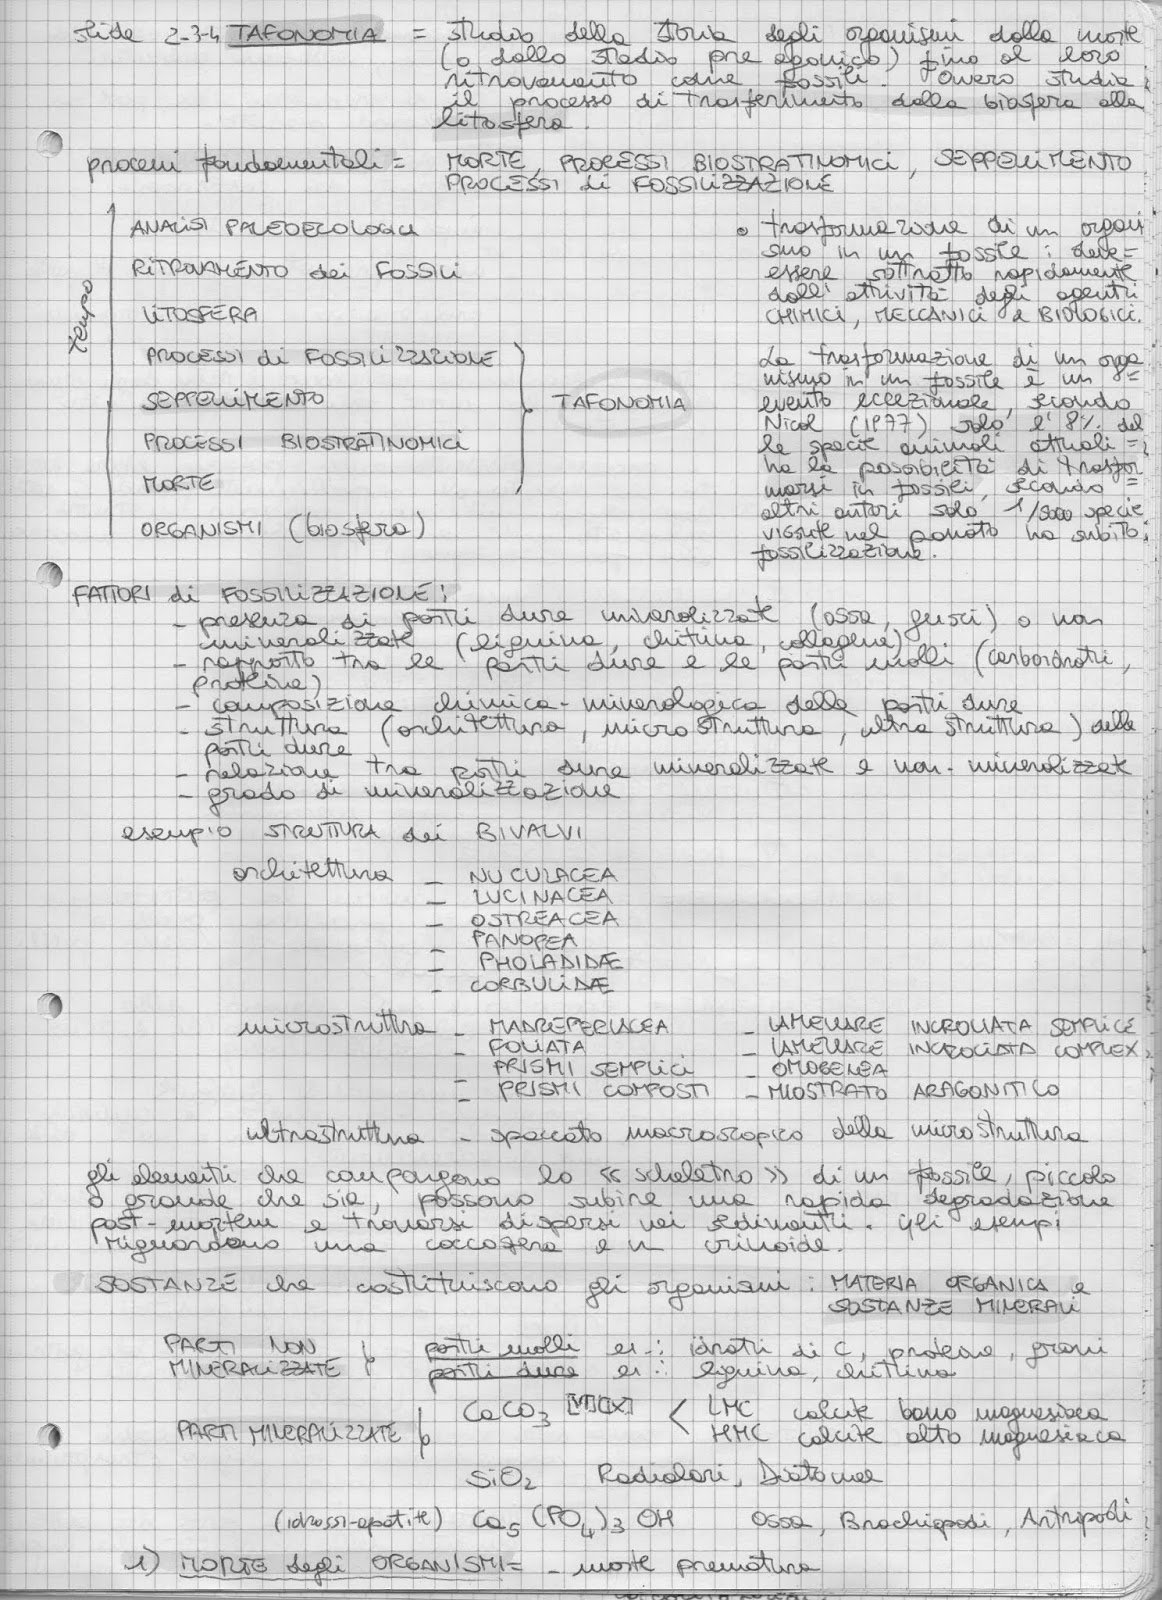 slide 2-3-4 TAFONOMIA = studio della storia degli organismi dalla morte
(o dallo stadio pre agonico) fino al loro
ritrovamento come fossili. Ovvero studia
il processo di trasferimento dalla biosfera alla
litosfera.
processi fondamentali = MORTE, PROCESSI BIOSTRATINOMICI, SEPPELLIMENTO
PROCESSI di FOSSILIZZAZIONE
tempo
ANALISI PALEOECOLOGICA
RITROVAMENTO dei FOSSILI
LITOSFERA
PROCESSI di FOSSILIZZAZIONE
SEPPELLIMENTO
PROCESSI BIOSTRATINOMICI
MORTE
ORGANISMI (biosfera)
TAFONOMIA
• trasformazione di un organi
smo in un fossile : deve=
essere sottratto rapidamente
dall'attività degli agenti
CHIMICI, MECCANICI e BIOLOGICI.
La trasformazione di un orga
nismo in un fossile è un =
evento eccezionale, secondo
Nicol (1977) solo l'8% del
le specie animali attuali =
ha la possibilità di trasfor
marsi in fossili, secondo =
altri autori solo 1/5000 specie
vissute nel passato ha subito
fossilizzazione.
FATTORI di FOSSILIZZAZIONE:
- presenza di parti dure mineralizzate (ossa, gusci) o non
mineralizzate (lignina, chitina, collagene)
- rapporto tra le parti dure e le parti molli (carboidrati,
proteine)
- composizione chimica-mineralogica della parti dure
- struttura (architettura, microstruttura, ultrastruttura) delle
parti dure
- relazione tra parti dure mineralizzate e non-mineralizzate
- grado di mineralizzazione
esempio STRUTTURA dei BIVALVI
architettura - NUCULACEA
- LUCINACEA
- OSTREACEA
- PANOPEA
- PHOLADIDÆ
- CORBULIDÆ
microstruttura - MADREPERLACEA - LAMELLARE INCROCIATA SEMPLICE
- FOLIATA - LAMELLARE INCROCIATA COMPLEX
- PRISMI SEMPLICI - OMOGENEA
- PRISMI COMPOSTI - MIOSTRATO ARAGONITICO
ultrastruttura - spaccato macroscopico della microstruttura
gli elementi che compongono lo «scheletro» di un fossile, piccolo
o grande che sia, possono subire una rapida degradazione
post-mortem e trovarsi dispersi nei sedimenti. Gli esempi
riguardano una coccosfera e un crinoide.
SOSTANZE che costituiscono gli organismi : MATERIA ORGANICA e
SOSTANZE MINERALI
PARTI NON
MINERALIZZATE
parti molli es.: idrati di C, proteine, grassi
parti dure es.: lignina, chitina
PARTI MINERALIZZATE
CaCO3 < LMC calcite basso magnesiaca
HMC calcite alto magnesiaca
SiO2 Radiolari, Diatomee
(idrossi-apatite) Ca5 (PO4)3 OH Ossa, Brachiopodi, Artropodi
1) MORTE degli ORGANISMI = - morte prematura